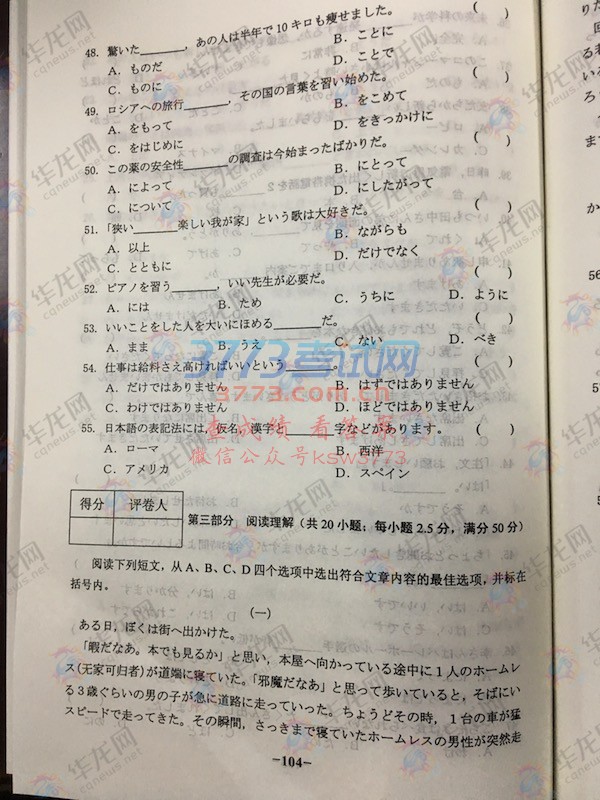 48. 驚いた______，あの人は半年で10キロも痩せました。 (　)
A. ものだ　B. ことに
C. ものに　D. ことで
49. ロシアへの旅行______，その国の言葉を習い始めた。 (　)
A. をもって　B. をこめて
C. をはじめに　D. をきっかけに
50. この薬の安全性______の調査は今始まったばかりだ。 (　)
A. によって　B. にとって
C. について　D. にしたがって
51. 「狭い______楽しい我が家」という歌は大好きだ。 (　)
A. 以上　B. ながらも
C. とともに　D. だけでなく
52. ピアノを習う______，いい先生が必要だ。 (　)
A. には　B. ため　C. うちに　D. ように
53. いいことをした人を大いにほめる______だ。 (　)
A. まま　B. うえ　C. ない　D. べき
54. 仕事は給料さえ高ければいいという______。 (　)
A. だけではありません　B. はずではありません
C. わけではありません　D. ほどではありません
55. 日本語の表記法には，仮名，漢字と______字などがあります。 (　)
A. ローマ　B. 西洋
C. アメリカ　D. スペイン
得分　评卷人
第三部分　阅读理解（共20小题；每小题2.5分，满分50分）
阅读下列短文，从A、B、C、D四个选项中选出符合文章内容的最佳选项，并标在
括号内。
（一）
ある日，ぼくは街へ出かけた。
「暇だなあ。本でも見るか」と思い，本屋へ向かっている途中に1人のホームレ
ス(无家可归者)が道端に寝ていた。「邪魔だなあ」と思って歩いていると，そばにい
る3歳ぐらいの男の子が急に道路に走っていった。ちょうどその時，1台の車が猛
スピードで走ってきた。その瞬間，さっきまで寝ていたホームレスの男性が突然走
-104-
3773考试网
3773.com.cn
查成绩 看
微信公众号ksw3773
华龙网
cqnews.net